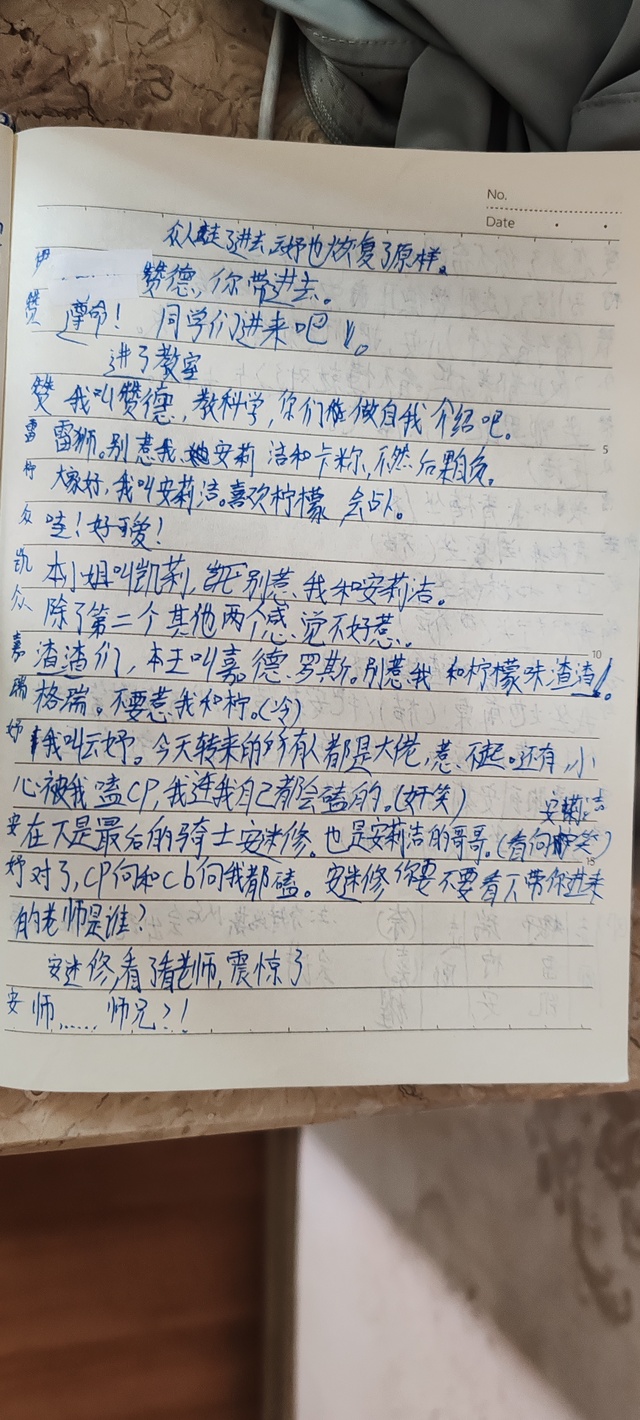 No.
Date
众人走了进去云妤也恢复了原样。
伊 赞德,你带进去。
赞 遵命! 同学们进来吧!。
进了教室
赞 我叫赞德,教科学,你们做自我介绍吧。
雷 雷狮。别惹我、安莉洁和卡米尔,不然后果自负。
柠 大家好,我叫安莉洁。喜欢柠檬 会占卜。
众 哇!好可爱!
凯 本小姐叫凯莉,别惹我和安莉洁。
众 除了第二个其他两个感觉不好惹。
嘉 渣渣们,本王叫嘉德罗斯。别惹我 和柠檬味渣渣!
瑞 格瑞。不要惹我和柠。(冷)
妤 我叫云妤。今天转来的所有人都是大佬,惹不起。还有,小
心被我嗑CP,我连我自己都会磕的。(奸笑)
安莉洁
安 在下是最后的骑士安迷修。也是安莉洁的哥哥。(看向笑)
妤 对了,CP向和Cb向我都磕。安迷修你要不要看下带你进来
的老师是谁?
安迷修,看了看老师,震惊了
安 师…… 师兄?!
5
10
15